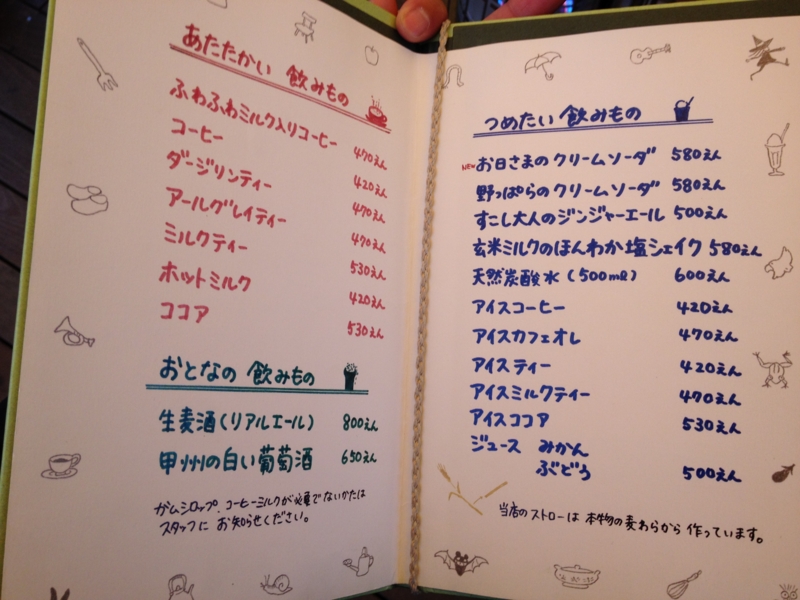 あたたかい 飲みもの
ふわふわミルク入りコーヒー 470えん
コーヒー 420えん
ダージリンティー 470えん
アールグレイティー 470えん
ミルクティー 530えん
ホットミルク 420えん
ココア 530えん
おとなの 飲みもの
生麦酒(リアルエール) 800えん
甲州の白い葡萄酒 650えん
ガムシロップ、コーヒーミルクが必要でないかたは
スタッフに お知らせください。
つめたい 飲みもの
NEW お日さまのクリームソーダ 580えん
野っぱらのクリームソーダ 580えん
すこし大人のジンジャーエール 500えん
玄米ミルクのほんわか塩シェイク 580えん
天然炭酸水(500ml) 600えん
アイスコーヒー 420えん
アイスカフェオレ 470えん
アイスティー 420えん
アイスミルクティー 470えん
アイスココア 530えん
ジュース みかん
ぶどう 500えん
当店のストローは 本物の麦わらから 作っています。